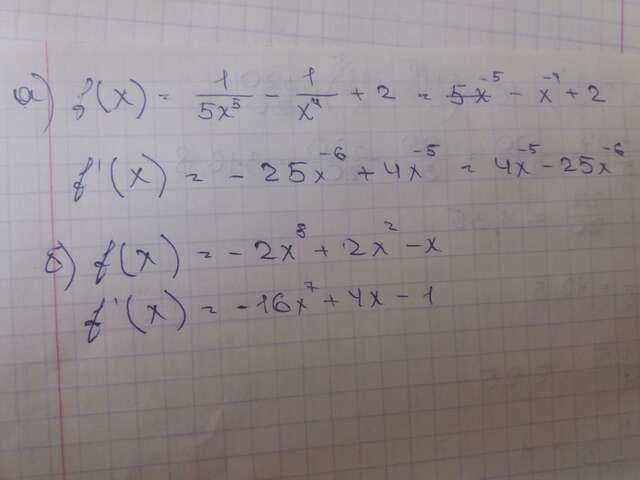 а) f(x) = 1/5x⁵ - 1/x⁴ + 2 = 5x⁻⁵ - x⁻⁴ + 2
f'(x) = -25x⁻⁶ + 4x⁻⁵ = 4x⁻⁵ - 25x⁻⁶
б) f(x) = -2x⁸ + 2x² - x
f'(x) = -16x⁷ + 4x - 1